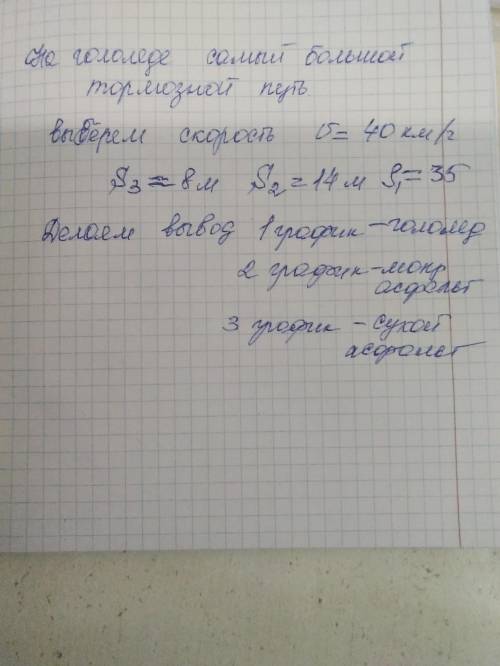 На гололеде самый большой
тормозной путь
выберем скорость v = 40 км/г
S₃ ≈ 8 м S₂ = 14 м S₁ = 35
Делаем вывод 1 график - гололед
2 график - мокр
асфальт
3 график - сухой
асфальт